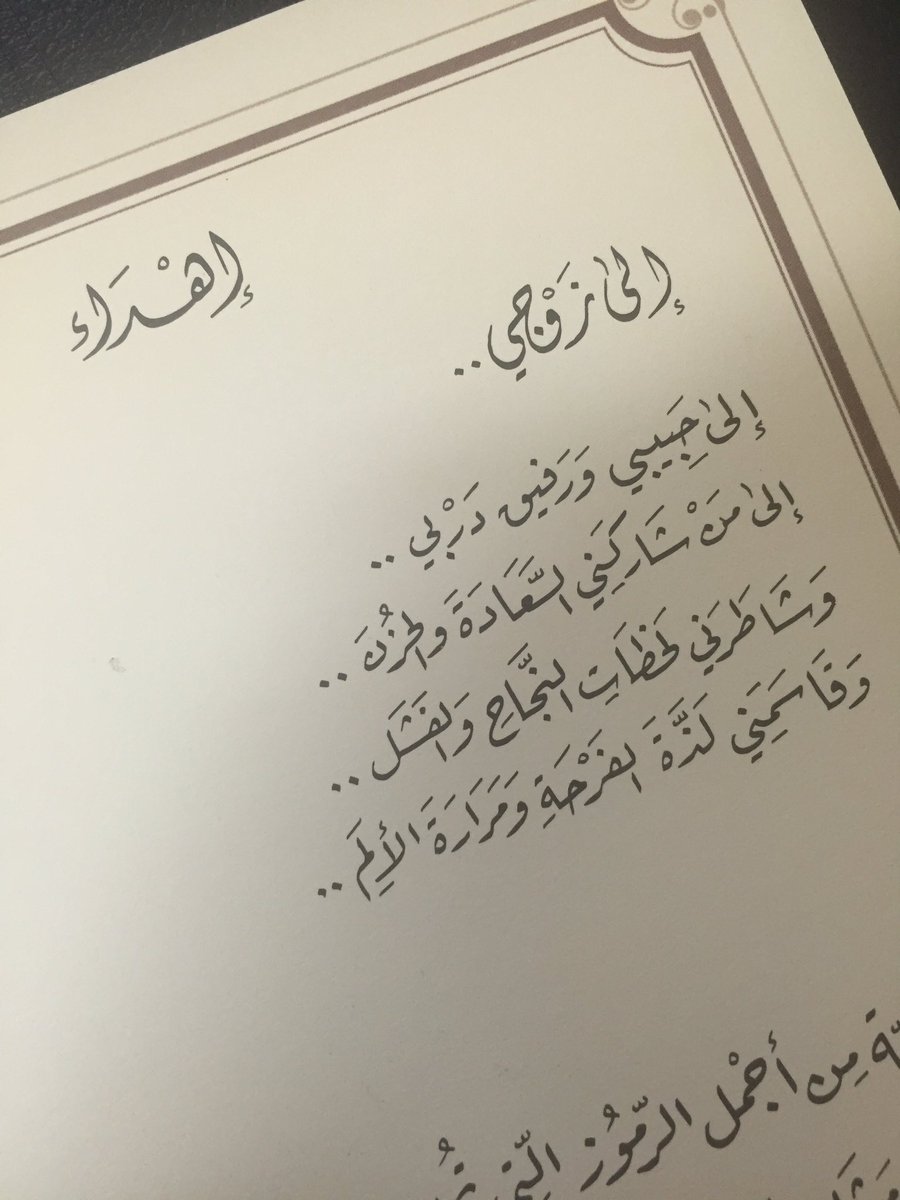 إهْدَاء
إلىٰ زَوْجي ..
إلىٰ حَبِيبي وَرَفيق دَرْبي ..
إلىٰ مَنْ شَارَكَنِي السَّعَادَةَ وَالحُزْنَ ..
وَشَاطَرَني لَحَظَاتِ النَّجَّاحِ وَالفَشَل ..
وَقَاسَمَنِي لَذَّةَ الفَرْحَةِ وَمَرَارَةَ الأَلَمِ ..
مِن أجْمل الرّمُوز الّتي